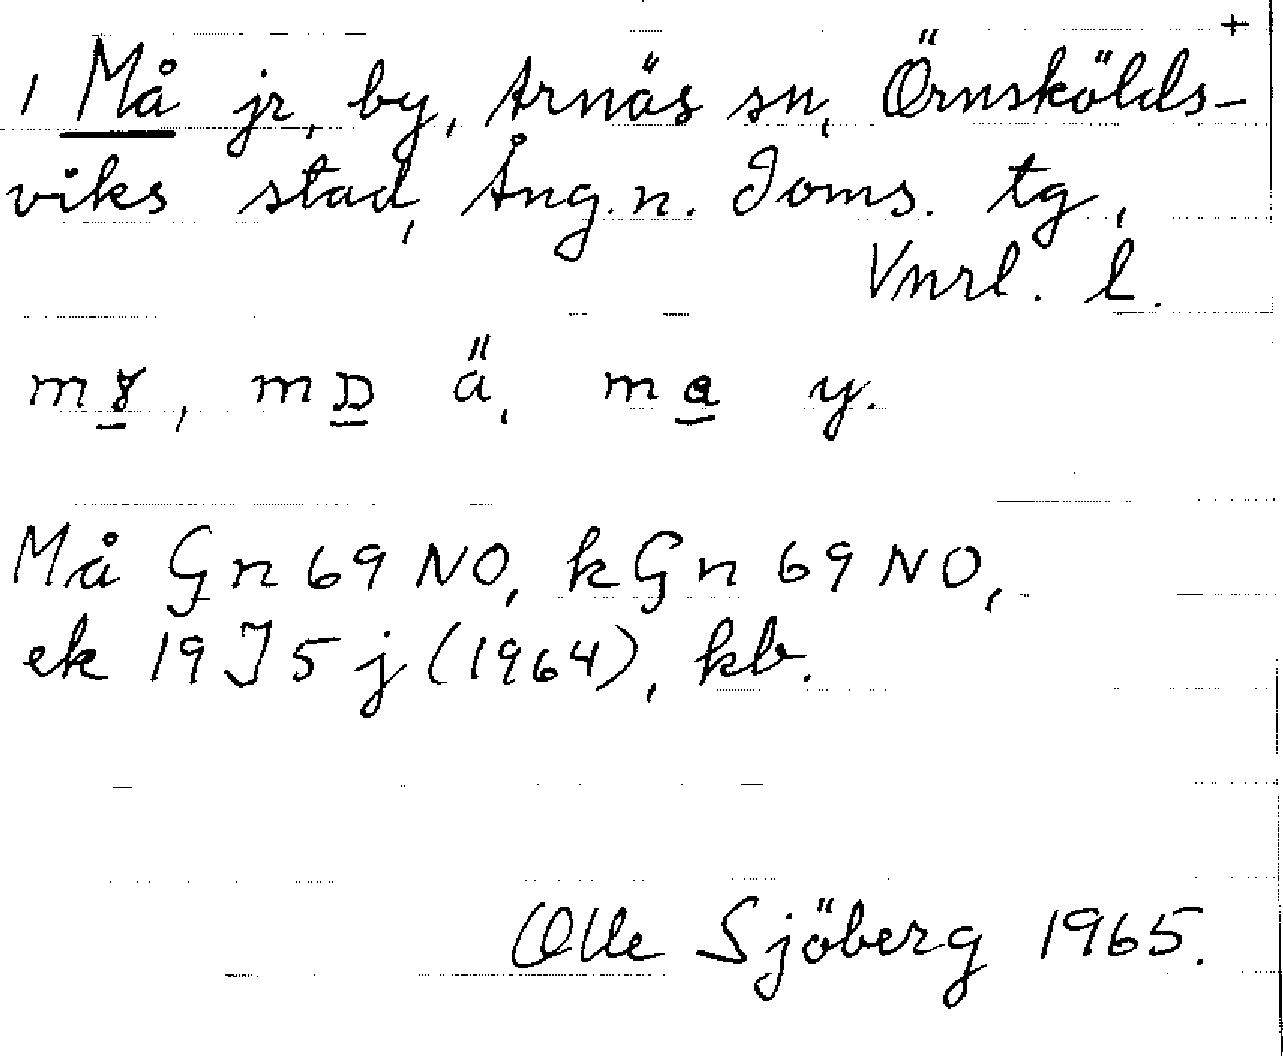 +
1 Må jr, by, Arnäs sn, Örnskölds-
viks stad, Ång. n. Doms. tg,
Vnrl. l.
m, m ä, m y.
Må Gn 69 NO, kGn 69 NO,
ek 19 J 5 j (1964), kb.
Olle Sjöberg 1965.